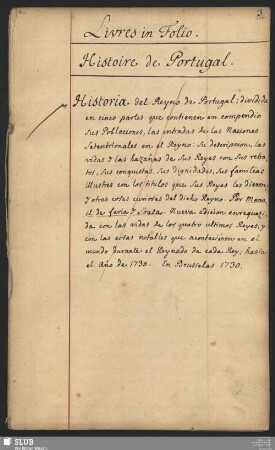 3.
Livres in Folio.
Histoire de Portugal.
Historia del Reyno de Portugal; dividida
en cinco partes que contienen en compendio
sus Poblaciones, las entradas de las Naciones
Setentrionales en el Reyno: Su descripcion, las
vidas y las hazañas de sus Reyes con sus retra-
tos, sus conquistas, sus Dignidades, sus familias
illustres con los titulos que sus Reyes les dieron;
y otras cosas curiosas del dicho Reyno. Por Manu-
el de faria y Sousa. Nueva edicion enrequezi-
da con las vidas de los quatro ultimos Reyes; y
con las cosas notables que acontecieron en el
mundo durante el Reynado de cada Rey; hasta
el Año de 1730. En Brusselas 1730.
SLUB